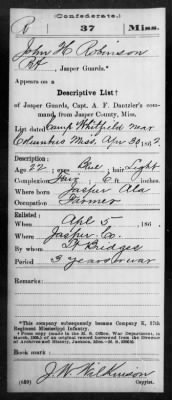 (Confederate.)
R 37 Miss.
John H Robinson
Pvt, Jasper Guards.*
Appears on a
Descriptive List†
of Jasper Guards, Capt. A. F. Dantzler's com-
mand, from Jasper County, Miss.
List dated Camp Whitfield near
Columbus Miss, Apr 30, 1862.
Description:
Age 22; eyes Blue; hair Light
Complexion Fair; 6 ft. inches.
Where born Jasper Ala
Occupation Farmer
Enlisted:
When Apl 5, 186
Where Jasper Co.
By whom Lt Bridges
Period 3 years or war
Remarks:
*This company subsequently became Company K, 37th
Regiment Mississippi Infantry.
† From copy (made in the M. S. Office, War Department, in
of original record borrowed from the Director
of Archives and History, Jackson, Miss.
Book mark:
(639) J. W. Wilkinson
Copyist.